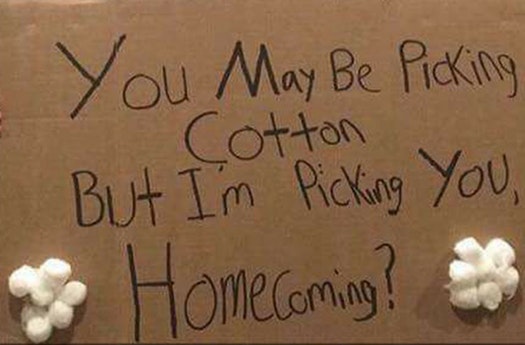 You May Be Picking
Cotton
But I'm Picking You,
Homecoming?